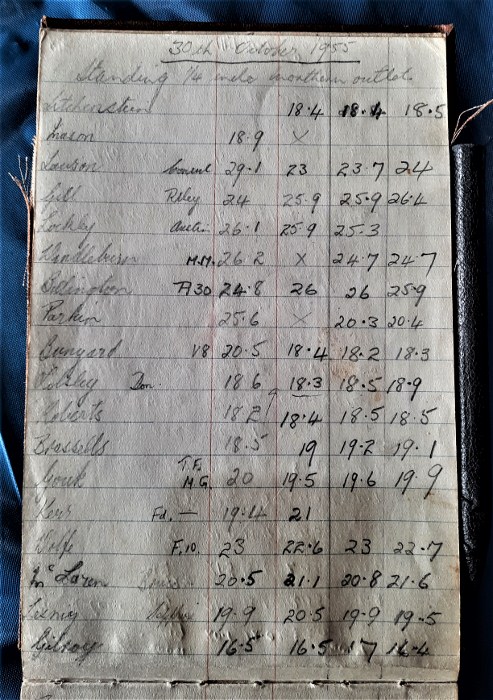 30th October, 1955
Standing 1/4 mile northern outlet
Litchenstein 18.4 18.4 18.5
Mason 18.9 X
Lawson 29.1 23 23.7 24
Gill Riley 24 25.9 25.9 26.4
Lockley Austin 26.1 25.9 25.3
M.M. 26.2 X 24.7 24.7
A30 24.8 26 26 25.9
Parkin 25.6 X 20.3 20.4
Bunyard V8 20.5 18.4 18.2 18.3
Don. 18 6 18.3 18.5 18.9
Roberts 18 2 18.4 18.5 18.5
Brassells 18.5 19 19.2 19.1
Gouk T.F. M.G. 20 19.5 19.6 19.9
Kerr Fd. — 19.4 21
Wolfe F.10. 23 22.6 23 22.7
McLaren 20.5 21.1 20.8 21.6
19.9 20.5 19.9 19.5
Gilroy 16.5 16.5 17 16.4